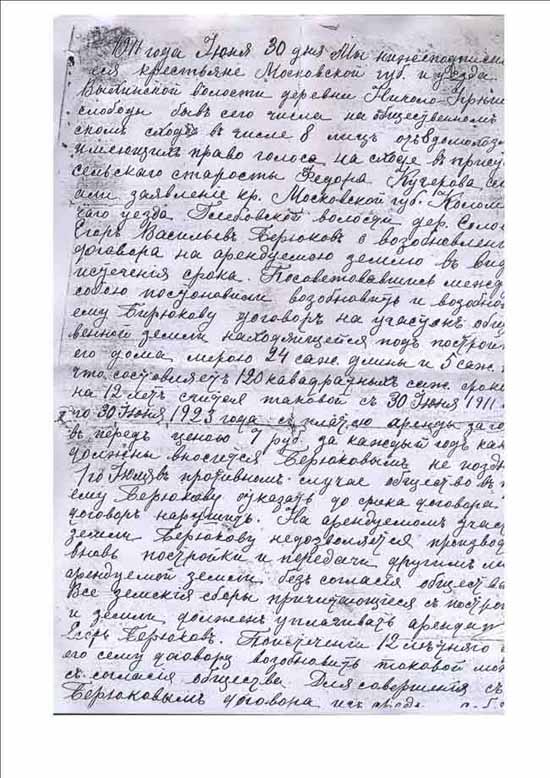 1911 года Июня 30 дня Мы нижеподписа
еся крестьяне Московской губ. и уезда
волости деревни Николо
слободы бывъ сего числа на общественномъ
скомъ сходѣ въ числе 8 лицъ отъ 8 домохоз
имеющихъ право голоса на сходе въ присут
сельскаго старосты Федора Кучерова
али заявление кр. Московской губ. Колом
каго уезда волости дер.
Егоръ Васильевъ Берюковъ о возобновлени
договора на арендуемою землю въ вид
истечения срока. Посоветовавшись между
собою постановили возобновить и возобнов
ему Бирюкову договоръ на участокъ обще
венной земли находящейся подъ постро
его дома мерою 24 саж. длины и 5 саж.
что составляетъ 120 кавадратныхъ саж. сроко
на 12 летъ считая таковой съ 30 Июня 1911
по 30 Июня 1923 года съ платою аренды за го
въ передъ ценою 7 руб. за каждый годъ
должны вносится Берюковымъ не поздн
1го Июля въ противномъ случае общество въ
ему Берюкову отказать до срока договора
договоръ нарушить. На арендуемомъ учас
земли Берюкову недозволяется производ
вновь постройки и передачи другимъ
арендуемой земли безъ согласия общества
Все земския сборы причитающиеся съ постро
и земли долженъ уплачивать арендат
Егоръ Берюковъ. По истечении 12 летняго
его сему договору возобновить таковой мо
съ согласия общества. Для совершения съ
Берюковымъ договора